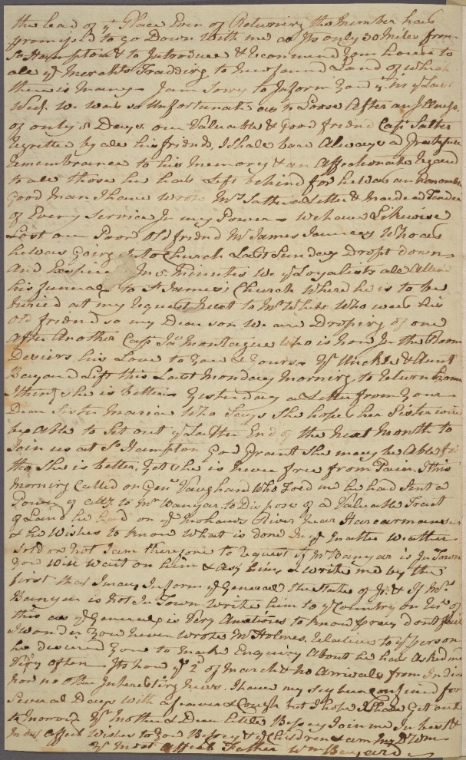 the head of y Place Even of Returning the Number has
promised to go Down with me as Its only 20 Miles from
So Hampton & to Introduce & Recommend Your house to
all y Merchts Tradding to Newfound Land of which
there is Many Jam Sorry to Inform You y in y Last
Week We was so Unfortunate as to Loose After an Illness
of only 8 Days our Valuable & Good friend Capt Salter
Regretted by all his friends, I Shale have Always a Gratefull
Remembrance to his Memory & an Affectionate Regard
to all those he has Left behind for he was an Honorable
Good Man I have wrote Mrs Salter a Letter & Made a Tender
of Every Service In my Power We have Likewise
Lost our Poor Old friend Mr James who as
he was Going to Church Last Sunday Dropt down
And Expired In 5 Minuites We y Loyalists all Attend
his funeral to St James's Church Where he is to be
buried at my Request Next to Mr White Who was his
Old friend so my Dear son We are Droping of one
After Another Capt Montague Who is Now In the Room
Desires his Love to You & Yours Yr Unckle & Aunt
Bayard Left this Last Monday Morning to Return home
I think she is better Yesterday a Letter from Your
Dear Sister Maria Who Says She hopes her Sister will
be Able to Set out y Latter End of the Next Month to
Join us at So Hampton God Grant She may be Able to
tho She is better, Yet she is Never free from Pain This
Morning Called on Genl Vaughan Who Told me he had Sent a
Power of Atty to Mr Banyar to Dispose of a Valuable Tract
of Land he had on y Mohawks River Near
& he Wishes to Know What is Done In y Matter Weather
Sold or Not I am therefore to Request if Mr Banyar is In Town
You will Wait on him & Ask him, & Write me by the
first that I may Inform y Generall the State of It & If Mr
Banyar is Not In Town Write him to y Country on Rect of
this as y Generall is Very Anxious to Know pray dont fail
I wonder You Never Wrote Mr Holmes Relative to y person
he desired You to Make Enquiry About he has Asked me
Very often Its Now y 2d of March & No Arrivals from India
nor no other Interesting News I have my Self been confined for
Several Days With a feavour & Cough but I hope I Shall Get out
to Morrow Yr Mother & Dear Little Betsey Join me In best &
Most Affect Wishes to You & Betsey & y Children & am My Dr Wm
Yr Most Affect Father Wm Bayard